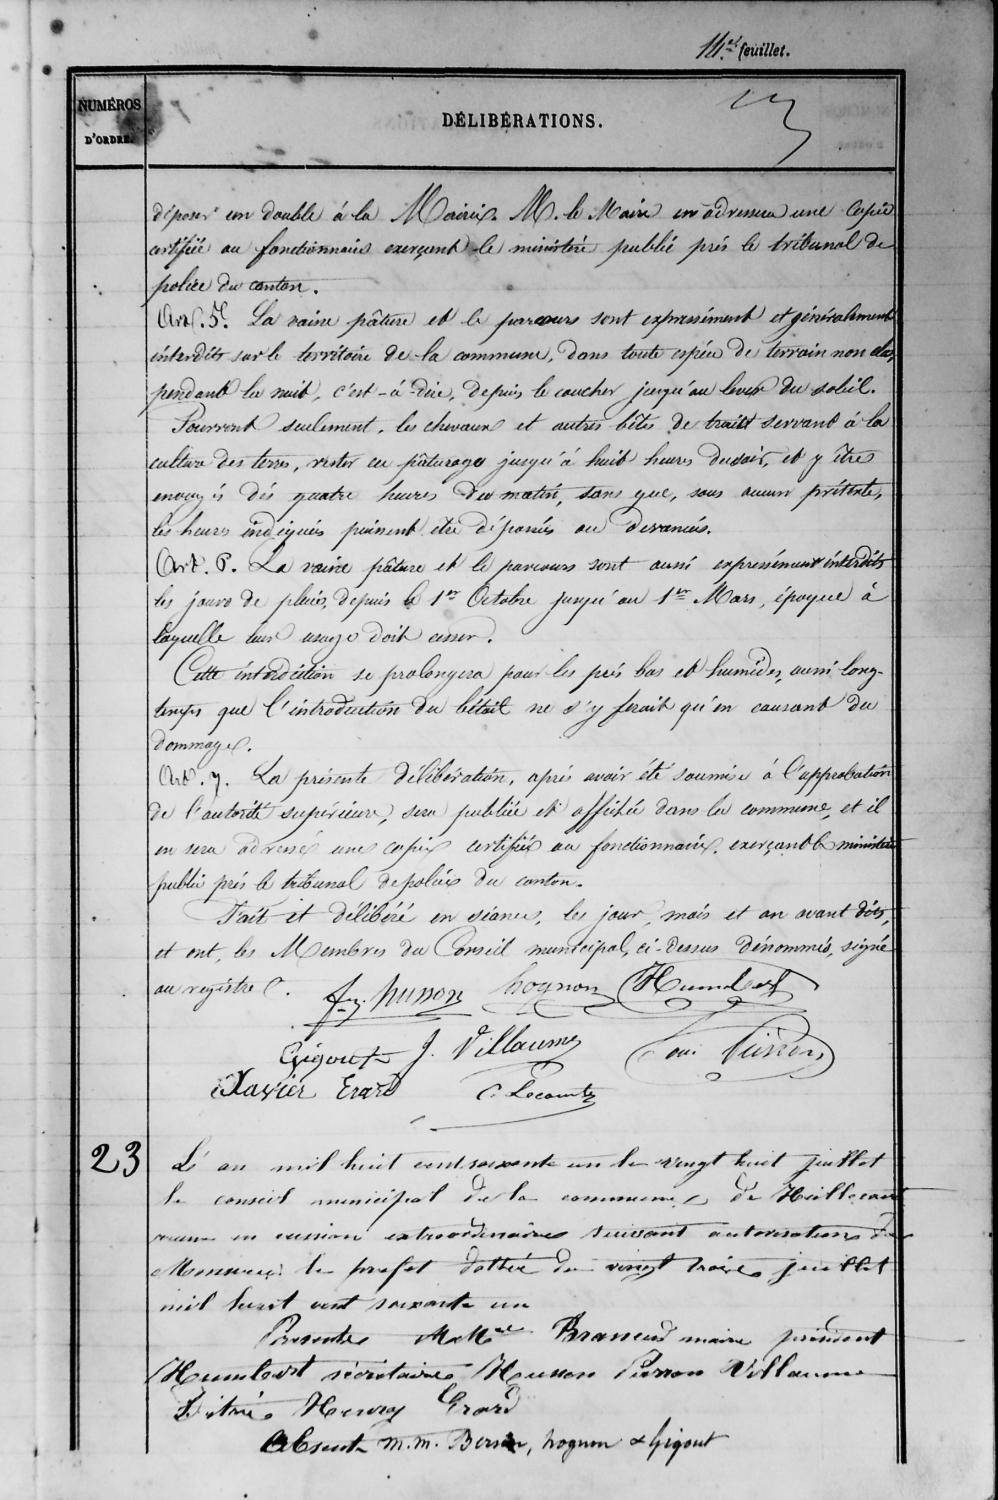 14.et feuillet.
NUMÉROS
D'ORDRE.
DÉLIBÉRATIONS.
déposer un double à la Mairie. M. le Maire en adressera une copie
certifiée au fonctionnaire exerçant le ministère public près le tribunal de
police du canton.
Art. 5e. La vaine pâture et le parcours sont expressément et généralement
interdits sur le territoire de la commune, dans toute espèce de terrain non clos,
pendant la nuit, c'est-à-dire, depuis le coucher jusqu'au lever du soleil.
Pourront seulement, les chevaux et autres bêtes de trait servant à la
culture des terres, rester en pâturage jusqu'à huit heures du soir, et y être
envoyés dès quatre heures du matin, sans que, sous aucun prétexte,
les heures indiquées puissent être dépassées ou devancées.
Art. 6. La vaine pâture et le parcours sont aussi expressément interdits
les jours de pluie, depuis le 1er Octobre jusqu'au 1er Mars, époque à
laquelle leur usage doit cesser.
Cette interdiction se prolongera pour les prés bas et humides, aussi long-
temps que l'introduction du bétail ne s'y ferait qu'en causant du
dommage.
Art. 7. La présente délibération, après avoir été soumise à l'approbation
de l'autorité supérieure, sera publiée et affichée dans la commune, et il
en sera adressé une copie certifiée au fonctionnaire exerçant le ministère
public près le tribunal de police du canton.
Fait et délibéré en séance, les jour, mois et an avant dits,
et ont, les Membres du Conseil municipal, ci-dessus dénommés, signé
au registre.
husson hognon Humbert
Gigout J. Villaume Pierron
Xavier Erard C. Lecomte
23
L'an mil huit cent soixante un le vingt huit juillet
le conseil municipal de la commune de Haillecourt
réunie en cession extraordinaire suivant autorisation de
Monsieur le prefet dattée du vingt trois juillet
mil huit cent soixante un
Presents MM. maire président
Humbert sécrétaire Husson Pierron Villaume
Henry Erard
Absents m.m. hognon & Gigout